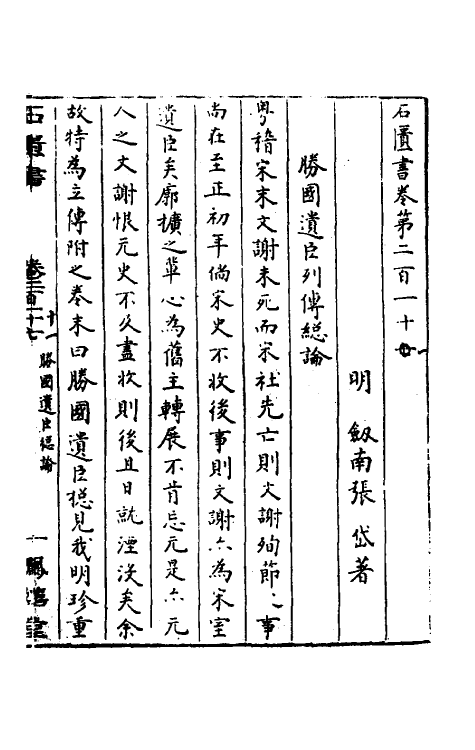 石匱書卷第二百一十
明　劔南張　岱著
勝國遺臣列傳総論
粤稽宋末文謝未死而宋社先亡則文謝殉節〻事
尚在至正初年倘宋史不收後事則文謝亦為宋室
遺臣矣廓擴之輩心為舊主轉展不肯忘元是亦元
人之文謝恨元史不久盡收則後且日就湮没矣余
故特為立傳附之卷末曰勝國遺臣総見我明珍重
石匱書
勝國遺臣総論
一